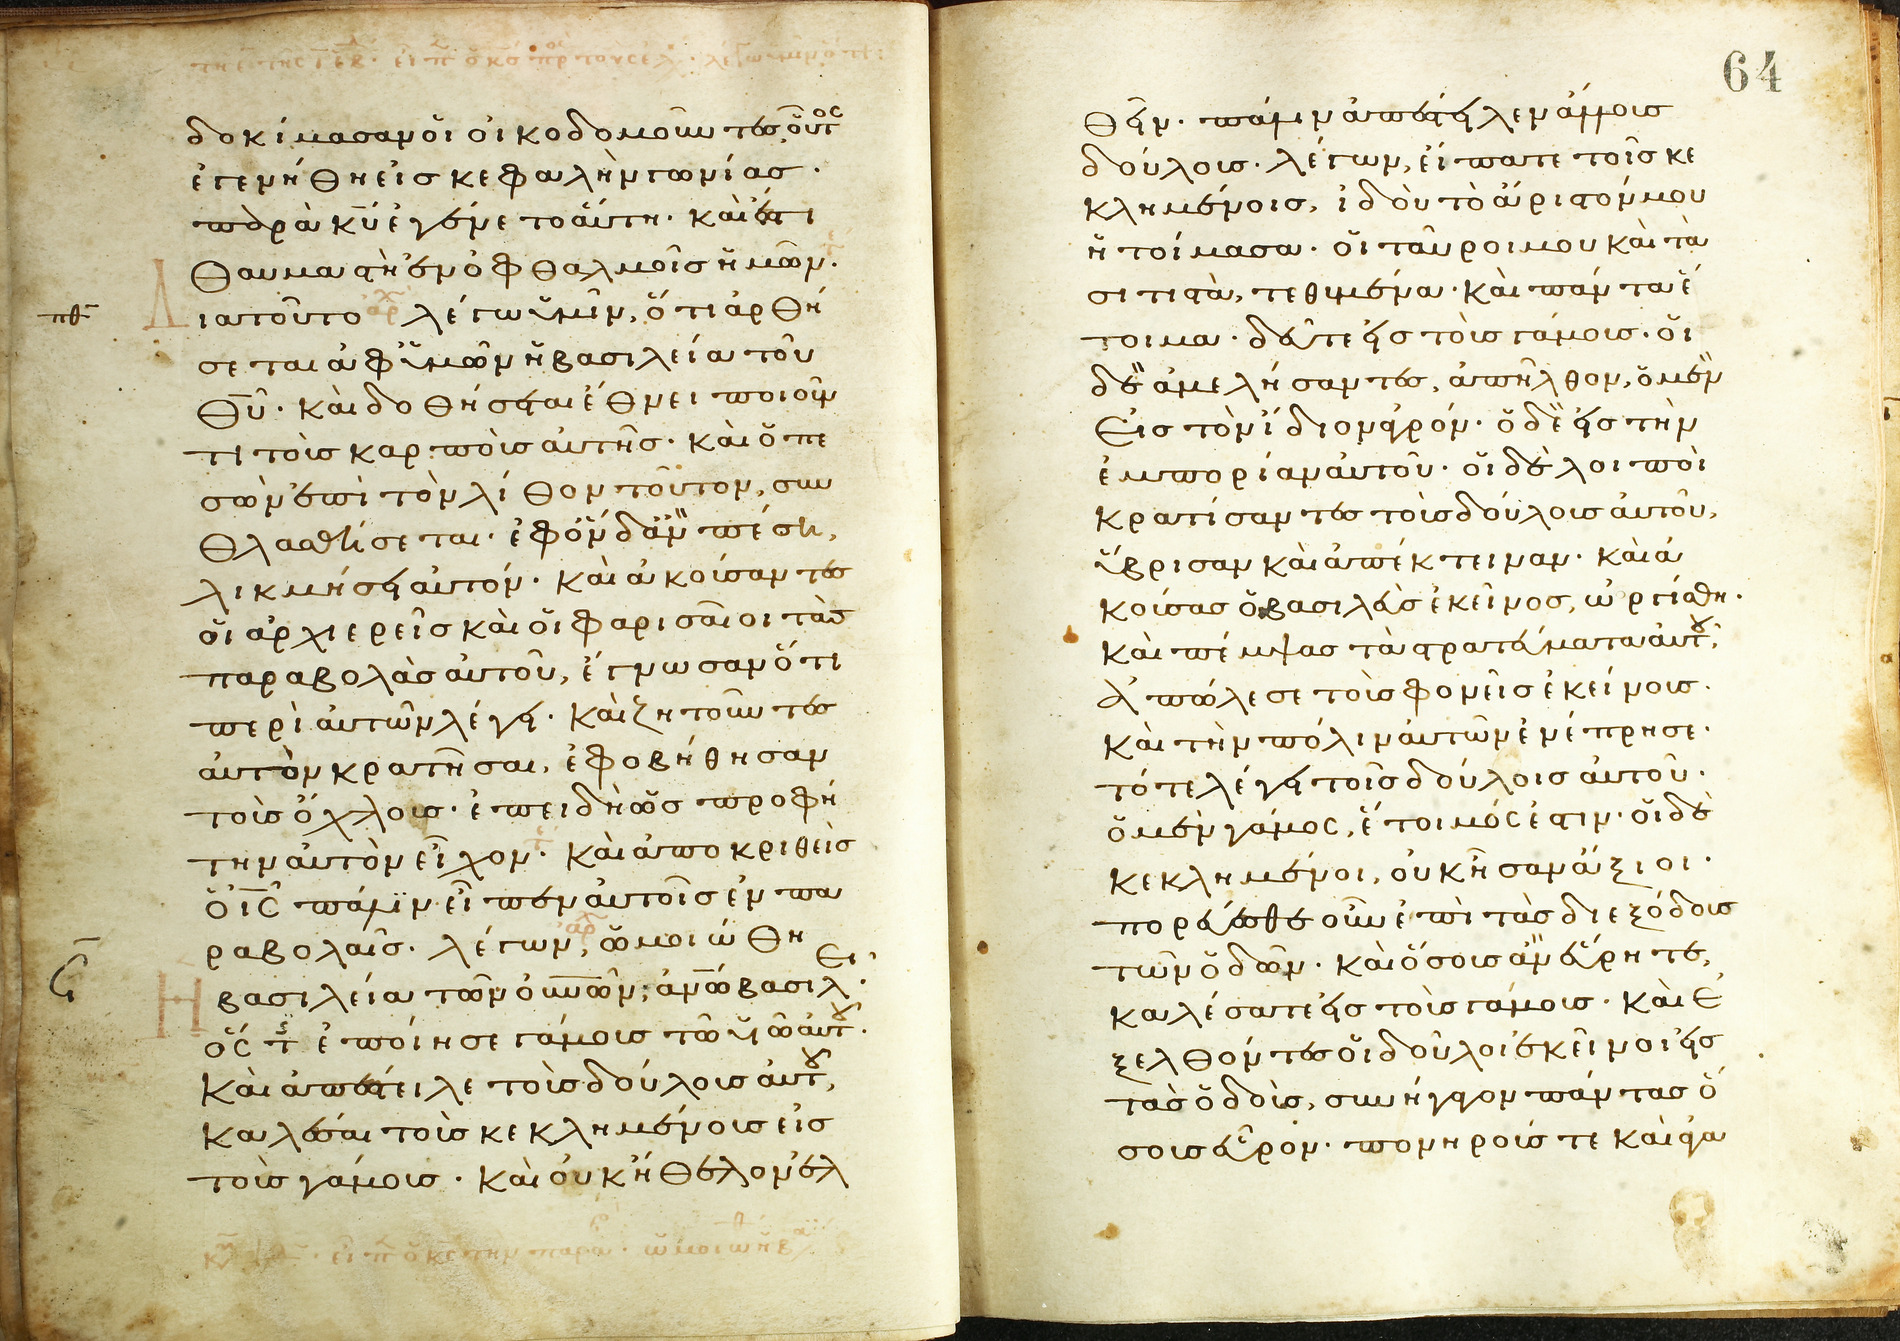 δοκίμασαν οἱ οἰκοδομοῦντες, οὗτος
ἐγενήθη εἰς κεφαλὴν γωνίας·
παρὰ κῦ ἐγένετο αὕτη· καὶ ἔστι
θαυμαστὴ ἐν ὀφθαλμοῖς ἡμῶν·
Διατοῦτο λέγω ὑμῖν, ὅτι ἀρθή
σεται ἀφ' ὑμῶν ἡ βασιλεία τοῦ
θῦ· καὶ δοθήσεται ἔθνει ποιοῦν
τι τοὺς καρποὺς αὐτῆς· καὶ ὁ πε
σὼν ἐπὶ τὸν λίθον τοῦτον, συν
θλασθήσεται· ἐφ' ὃν δ' ἂν πέσῃ,
λικμήσει αὐτόν· καὶ ἀκούσαντες
οἱ ἀρχιερεῖς καὶ οἱ φαρισαῖοι τὰς
παραβολὰς αὐτοῦ, ἔγνωσαν ὅτι
περὶ αὐτῶν λέγει· καὶ ζητοῦντες
αὐτὸν κρατῆσαι, ἐφοβήθησαν
τοὺς ὄχλους· ἐπειδὴ ὡς προφή
την αὐτὸν εἶχον· καὶ ἀποκριθεὶς
ὁ ἰς πάλιν εἶπεν αὐτοῖς ἐν πα
ραβολαῖς· λέγων, ὡμοιώθη
Ἡ βασιλεία τῶν οὐνῶν, ἀνῶ βασιλεῖ·
ὅς τ ἐποίησε γάμους τῶ υἱῶ αὐτοῦ·
καὶ ἀπέστειλε τοὺς δούλους αὐτοῦ,
καλέσαι τοὺς κεκλημένους εἰς
τοὺς γάμους· καὶ οὐκ ἤθελον ἐλ
64
θεῖν· πάλιν ἀπέστειλεν ἄλλους
δούλους· λέγων, εἴπατε τοῖς κε
κλημένοις, ἰδοὺ τὸ ἄριστόν μου
ἡτοίμασα· οἱ ταῦροι μου καὶ τὰ
σιτιστὰ, τεθυμένα· καὶ πάντα ἕ
τοιμα· δεῦτε εἰς τοὺς γάμους· οἱ
δὲ ἀμελήσαντες, ἀπῆλθον, ὁ μὲν
Εἰς τὸν ἴδιον ἀγρόν· ὁ δὲ εἰς τὴν
ἐμπορίαν αὐτοῦ· οἱ δὲ λοιποὶ
κρατήσαντες τοὺς δούλους αὐτοῦ,
ὕβρισαν καὶ ἀπέκτειναν· καὶ ἀ
κούσας ὁ βασιλεὺς ἐκεῖνος, ὠργίσθη·
καὶ πέμψας τὰ στρατεύματα αὐτοῦ,
ἀπώλεσε τοὺς φονεῖς ἐκείνους·
καὶ τὴν πόλιν αὐτῶν ἐνέπρησε·
τότε λέγει τοῖς δούλοις αὐτοῦ·
ὁ μὲν γάμος, ἕτοιμός ἐστιν· οἱ δὲ
κεκλημένοι, οὐκ ἦσαν ἄξιοι·
πορεύεσθε οὖν ἐπὶ τὰς διεξόδους
τῶν ὁδῶν· καὶ ὅσους ἂν εὕρητε,
καλέσατε εἰς τοὺς γάμους· καὶ ἐ
ξελθόντες οἱ δοῦλοι ἐκεῖνοι εἰς
τὰς ὁδοὺς, συνήγαγον πάντας ὅ
σους εὗρον· πονηρούς τε καὶ ἀγα